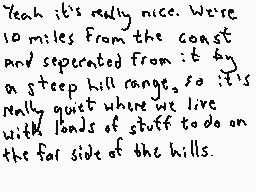 Yeah it's really nice. We're
10 miles from the coast
and seperated from it by
a steep hill range, so it's
really quiet where we live
with loads of stuff to do on
the far side of the hills.